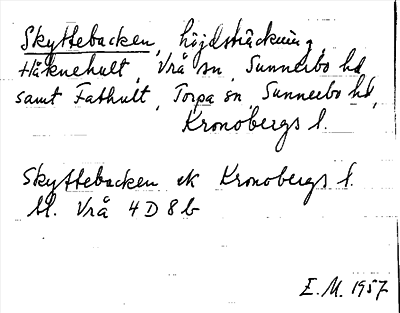 Skyttebacken, höjdsträckning,
Håknehult, Vrå sn, Sunnerbo hd
samt Fathult, Torpa sn, Sunnerbo hd,
Kronobergs l.
Skyttebacken ek Kronobergs l.
bl. Vrå 4D8b
E.M. 1957